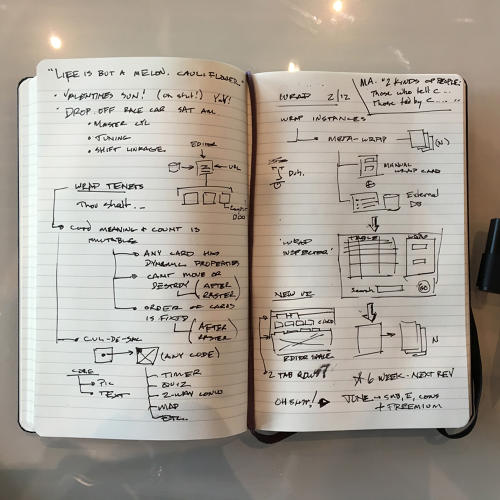 "LIFE IS BUT A MELON. CAULIFLOWER."
• VALENTINES SUN! (oh shit!) YAY!
• DROP OFF RACE CAR SAT AM
• MASTER CYL
• TUNING
• SHIFT LINKAGE
EDITOR
URL
WRAP TENETS
Thou shalt...
CARD MEANING & COUNT IS
MUTABLE
ANY CARD HAS
DYNAMIC PROPERTIES
CAN'T MOVE OR
DESTROY (AFTER
RASTER)
ORDER OF CARDS
IS FIXED
(AFTER
RASTER
CUL-DE-SAC
(ANY CODE)
CORE
PIC
TEXT
TIMER
QUIZ
2-WAY CONVO
MAP
ETC.
WRAP 2/12
MA. "2 KINDS OF PEOPLE:
Those who tell C...
Those fed by C....."
WRAP INSTANCES
META-WRAP
(N)
Duh.
MANUAL
WRAP CARD
External
DB
'WRAP
INSPECTOR'
TABLE
WRAP
Search
GO
NEW VE
CARD
EDITOR SPACE
N
2 TAB ROWS?
6 WEEK - NEXT REV
OH SHIT!
JUNE → SMB, E, CONS
+ FREEMIUM